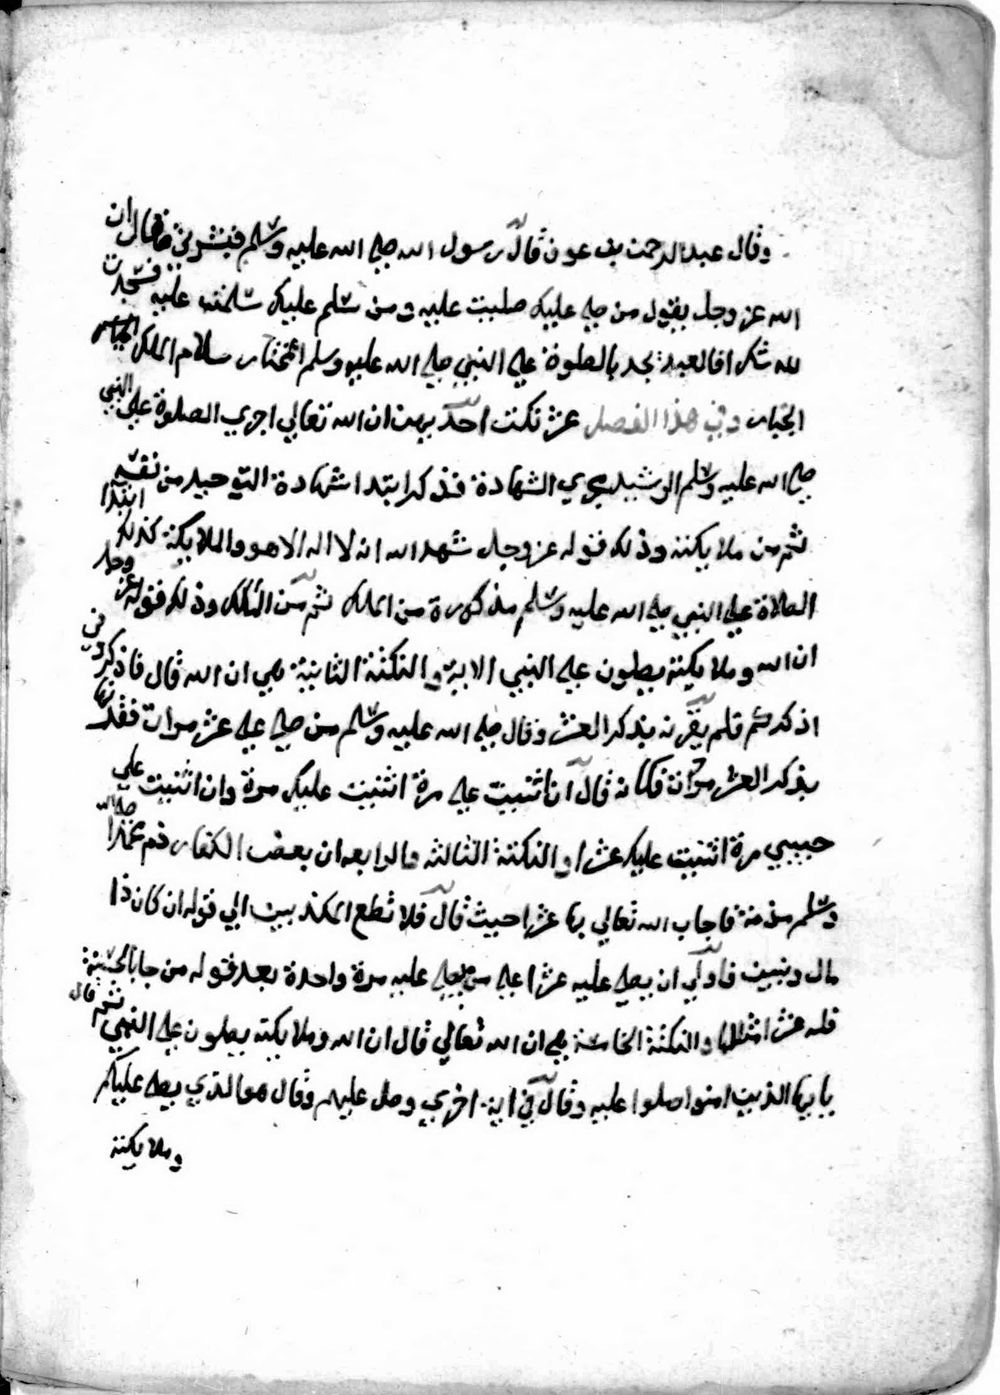 وقال عبدالرحمن بن عوف قال رسول الله صلي الله عليه وسلم فبشرني فقال ان
الله عز وجل يقول من صلي عليك صليت عليه ومن سلم عليك سلمت عليه فسجدت
لله شكرا فالعبد يجد بالصلوة علي النبي صلي الله عليه وسلم المختار سلام الملك
الجبار وفي هذا الفصل عشر نكت احد يهن ان الله تعالي اجري الصلوة علي النبي
صلي الله عليه وسلم الشهادة فذكر ابتدا شهادة التوحيد من نفسه
ثم من ملايكته وذلك قوله عز وجل شهد الله انه لا اله الا هو والملايكة كذلك ابتدا
الصلاة علي النبي صلي الله عليه وسلم مذكورة من الملك ثم من الملك وذلك قوله عز وجل
ان الله وملايكته يصلون علي النبي الاية والنكتة الثانية هي ان الله قال فاذكروني
اذكركم فلم يقرنه بذكر العشر وقال صلي الله عليه وسلم من صلي علي عشر مرات فقد
بذكر العشر مرات فكانه قال ان اثنيت علي مرة اثنيت عليك مرة وان اثنيت علي
حبيبي مرة اثنيت عليك عشرا والنكتة الثالثه والرابعه ان بعض الكفار ذم محمدا صلي الله
وسلم من منه فاجاب الله تعالي بها عشرا حيث قال فلا تطع المكذبين الي قوله ان كان ذا
مال وبنين فاولي ان يصلي عليه عشرا علي من يصلي عليه مرة واحدة بعد قوله من جا بالحسنة
فله عشر امثالها والنكتة الخامسة هي ان الله تعالي قال ان الله وملايكته يصلون علي النبي ثم قال
يا ايها الذين امنوا صلوا عليه وقال في اية اخري وصل عليهم وقال هو الذي يصلي عليكم
وملايكته